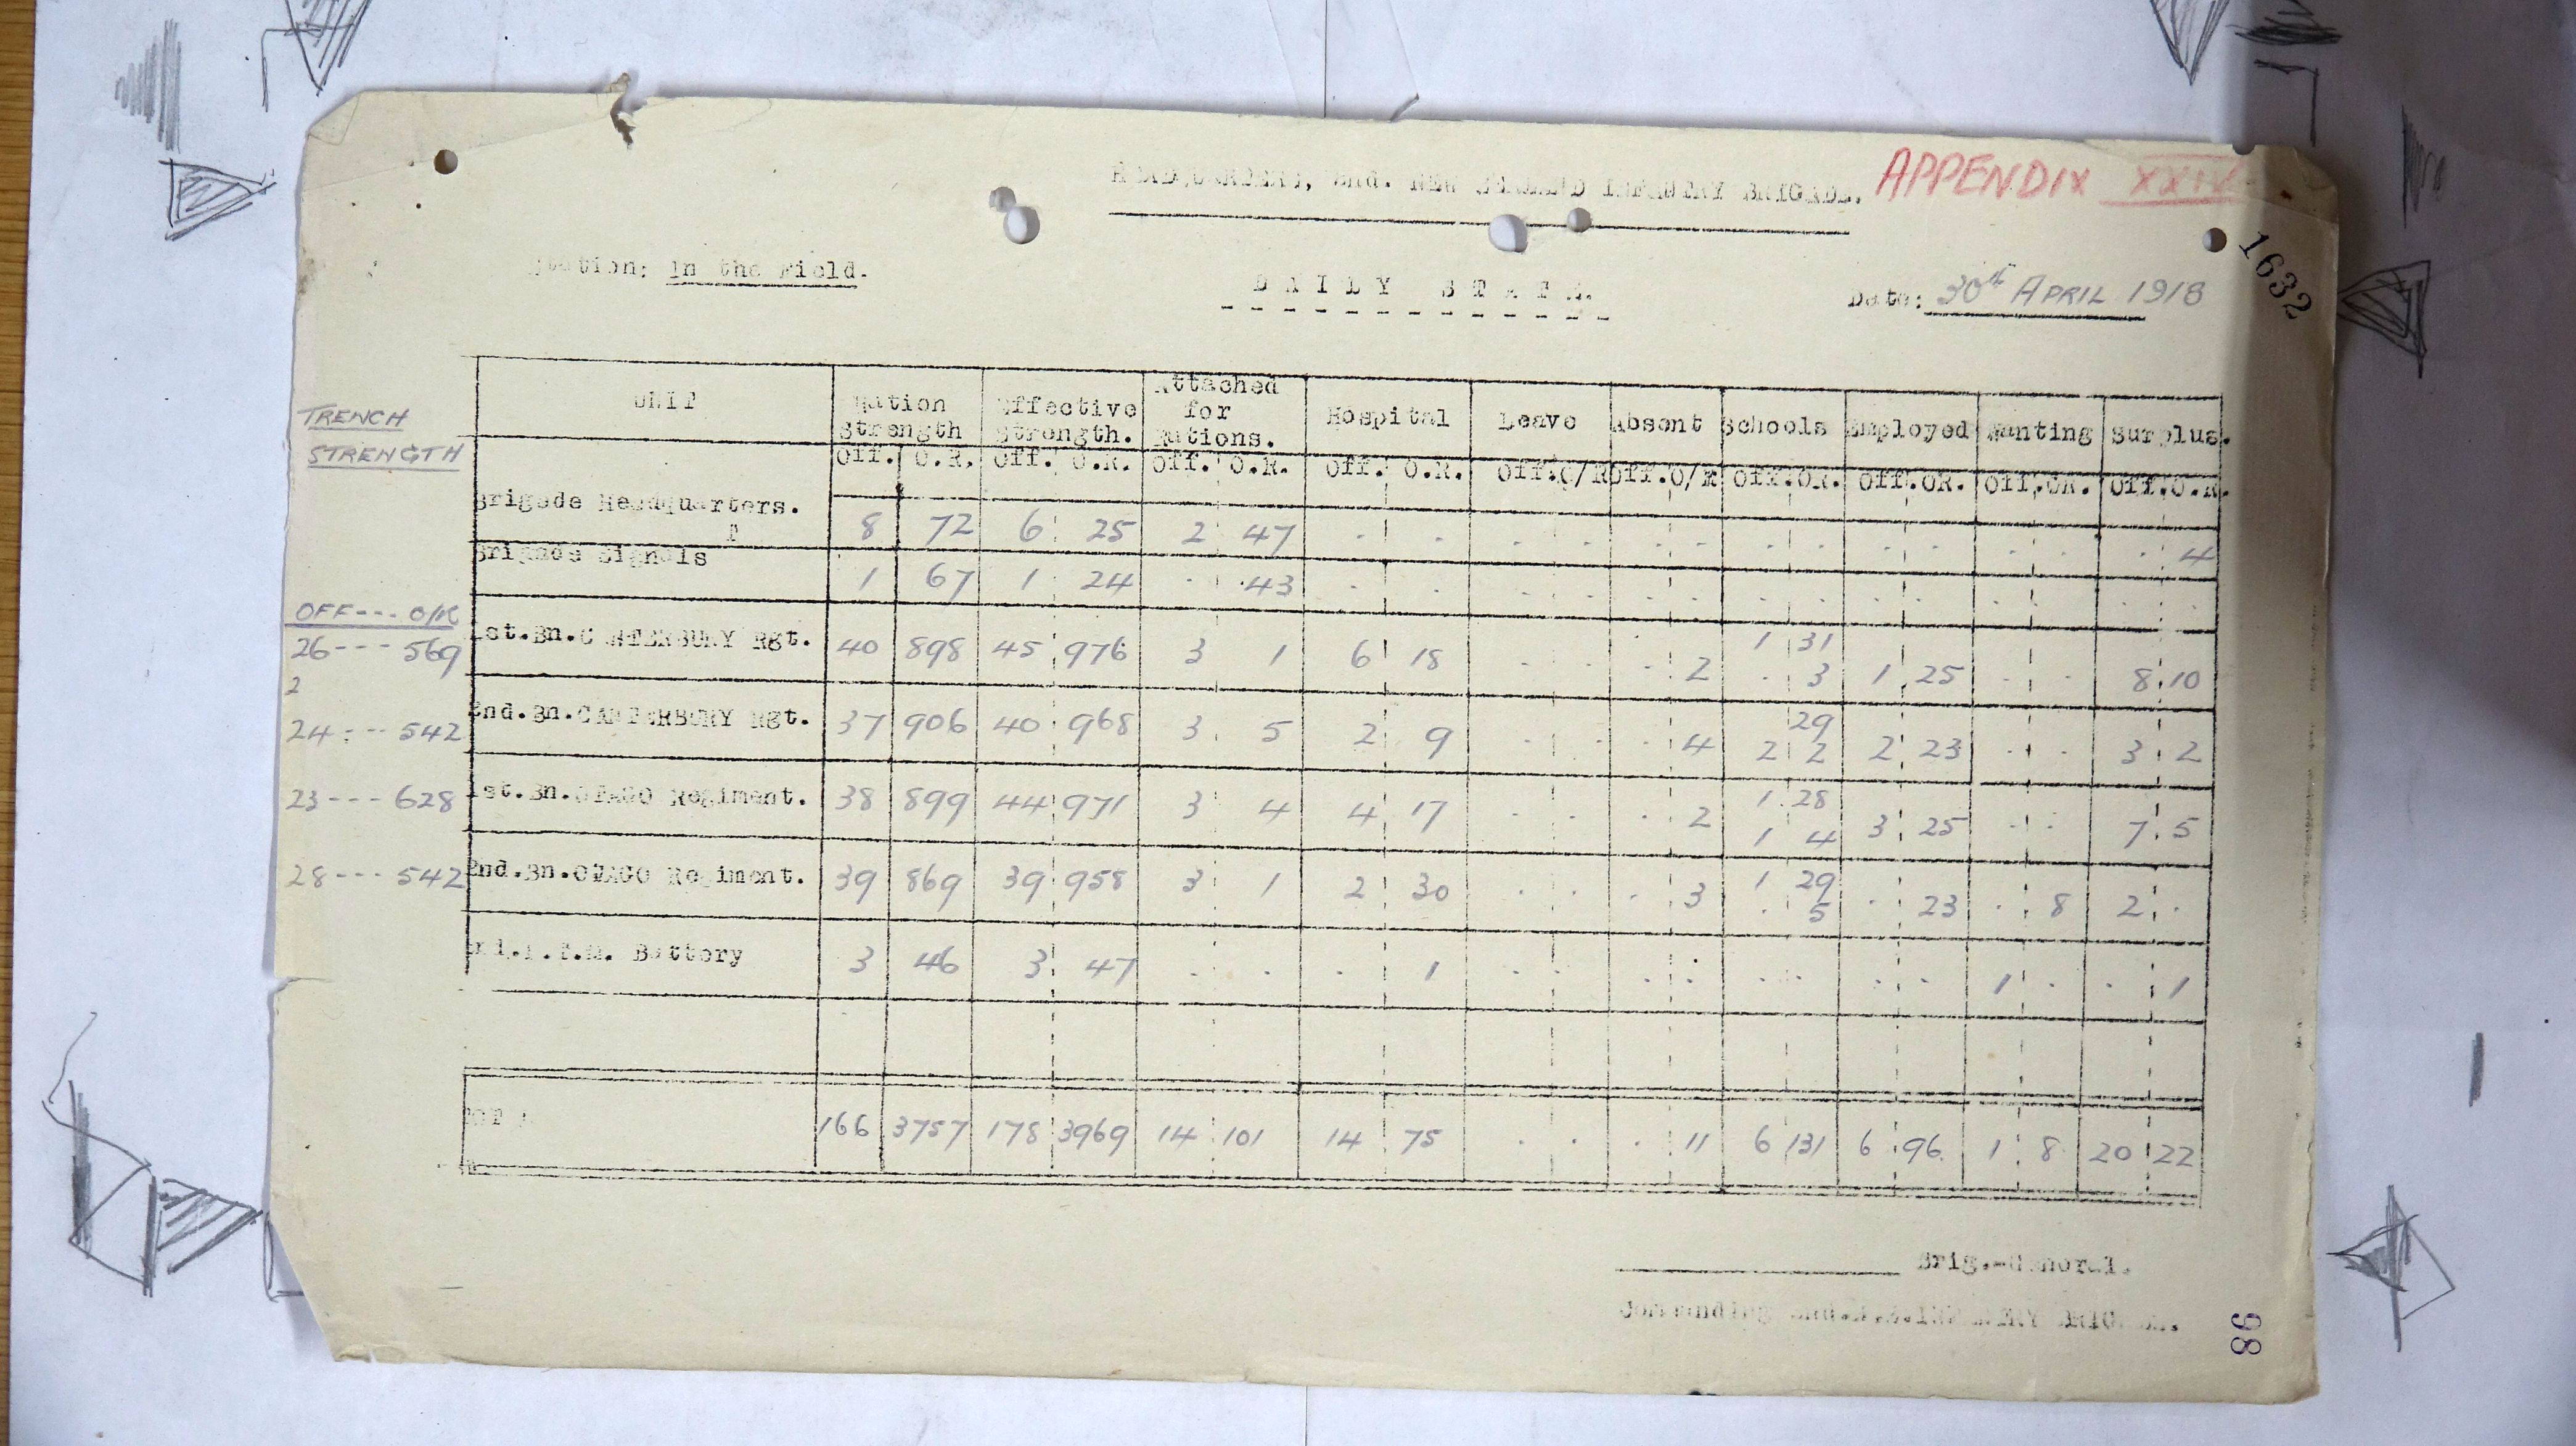 HEADQUARTERS, 2nd. NEW ZEALAND INFANTRY BRIGADE. APPENDIX XXIV
1632
Station: In the Field.
DAILY STATE.
Date: 30th APRIL 1918
TRENCH
STRENGTH
UNIT Ration Strength Effective Strength. Attached for Rations. Hospital Leave Absent Schools Employed Wanting Surplus.
Off. O.R. Off. O.R. Off. O.R. Off. O.R. Off. O/R Off. O/R Off. OR. Off. OR. Off. OR. Off. O.R.
Brigade Headquarters. 8 72 6 25 2 47 . . . . . . . . . . . . . 4
Brigade Signals 1 67 1 24 . 43 . . . . . . . . . . . . . .
OFF --- O/R
26 --- 569 1st.Bn.CANTERBURY Rgt. 40 898 45 976 3 1 6 18 . . . 2 1 31 . 3 1 25 . . 8 10
2
24 --- 542 2nd.Bn.CANTERBURY Rgt. 37 906 40 968 3 5 2 9 . . . 4 29 2 2 2 23 . . 3 2
23 --- 628 1st.Bn.OTAGO Regiment. 38 899 44 971 3 4 4 17 . . . 2 1 28 1 4 3 25 . . 7 5
28 --- 542 2nd.Bn.OTAGO Regiment. 39 869 39 958 3 1 2 30 . . . 3 1 29 . 5 . 23 . 8 2 .
Battery 3 46 3 47 . . . 1 . . . . . . . . 1 . . 1
166 3757 178 3969 14 101 14 75 . . . 11 6 131 6 96 1 8 20 22
Brig.-General.
Commanding 2nd.N.Z.INFANTRY BRIGADE.
98